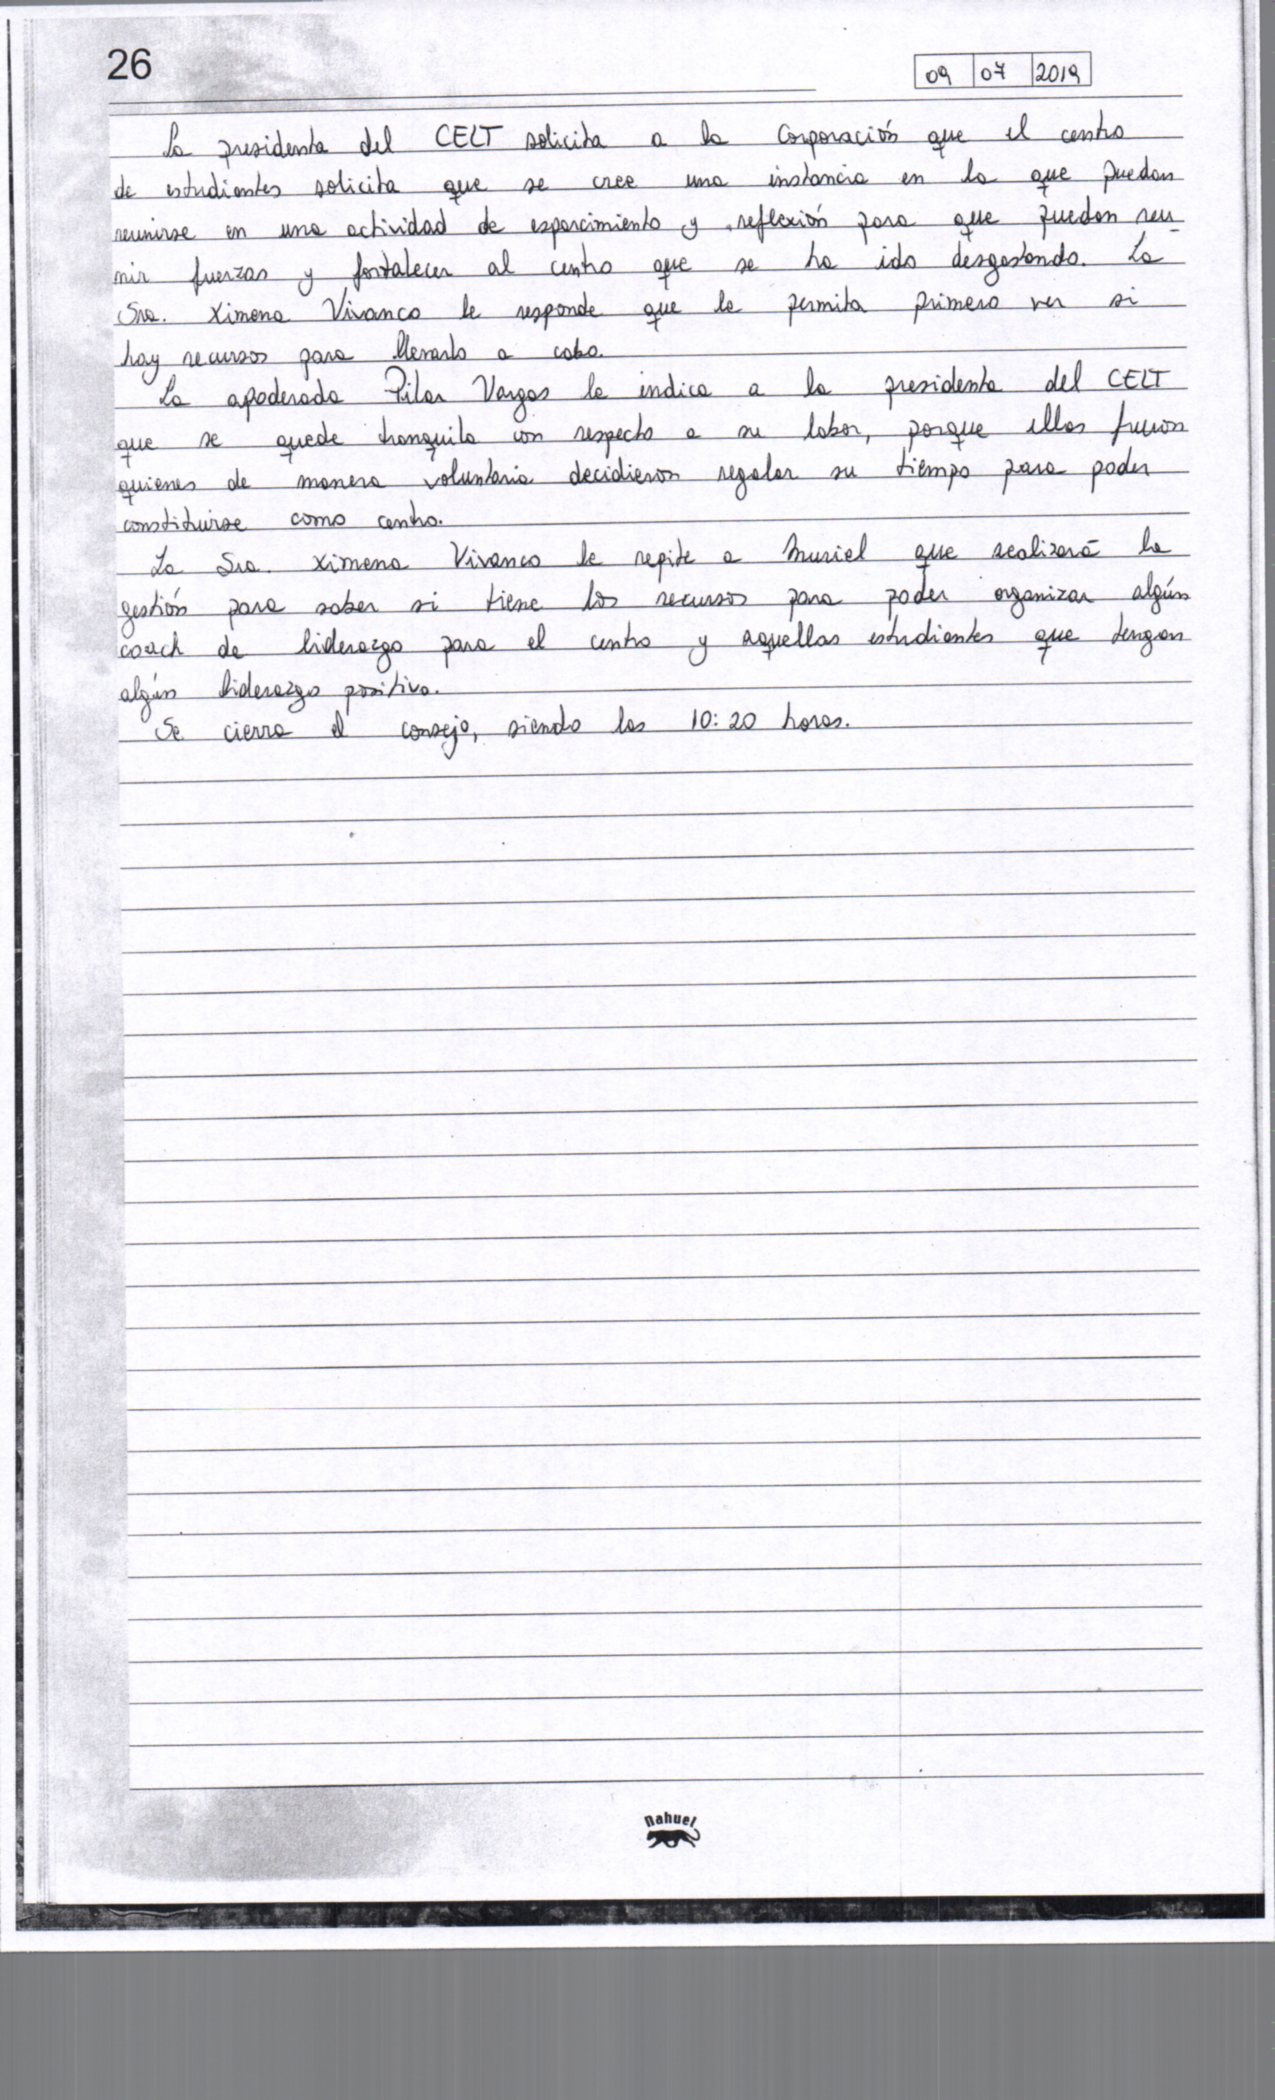 26
09 07 2019
La presidenta del CELT solicita a la Corporación que el centro
de estudiantes solicita que se cree una instancia en la que puedan
reunirse en una actividad de esparcimiento y reflexión para que puedan reu-
nir fuerzas y fortalecer al centro que se ha ido desgastando. La
Sra. Ximena Vivanco le responde que le permita primero ver si
hay recursos para llevarlo a cabo.
La apoderada Pilar Vargas le indica a la presidenta del CELT
que se quede tranquila con respecto a su labor, porque ellos fueron
quienes de manera voluntaria decidieron regalar su tiempo para poder
constituirse como centro.
La Sra. Ximena Vivanco le repite a Muriel que realizará la
gestión para saber si tiene los recursos para poder organizar algún
coach de liderazgo para el centro y aquellos estudiantes que tengan
algún liderazgo positivo.
Se cierra el consejo, siendo las 10:20 horas.
nahuel